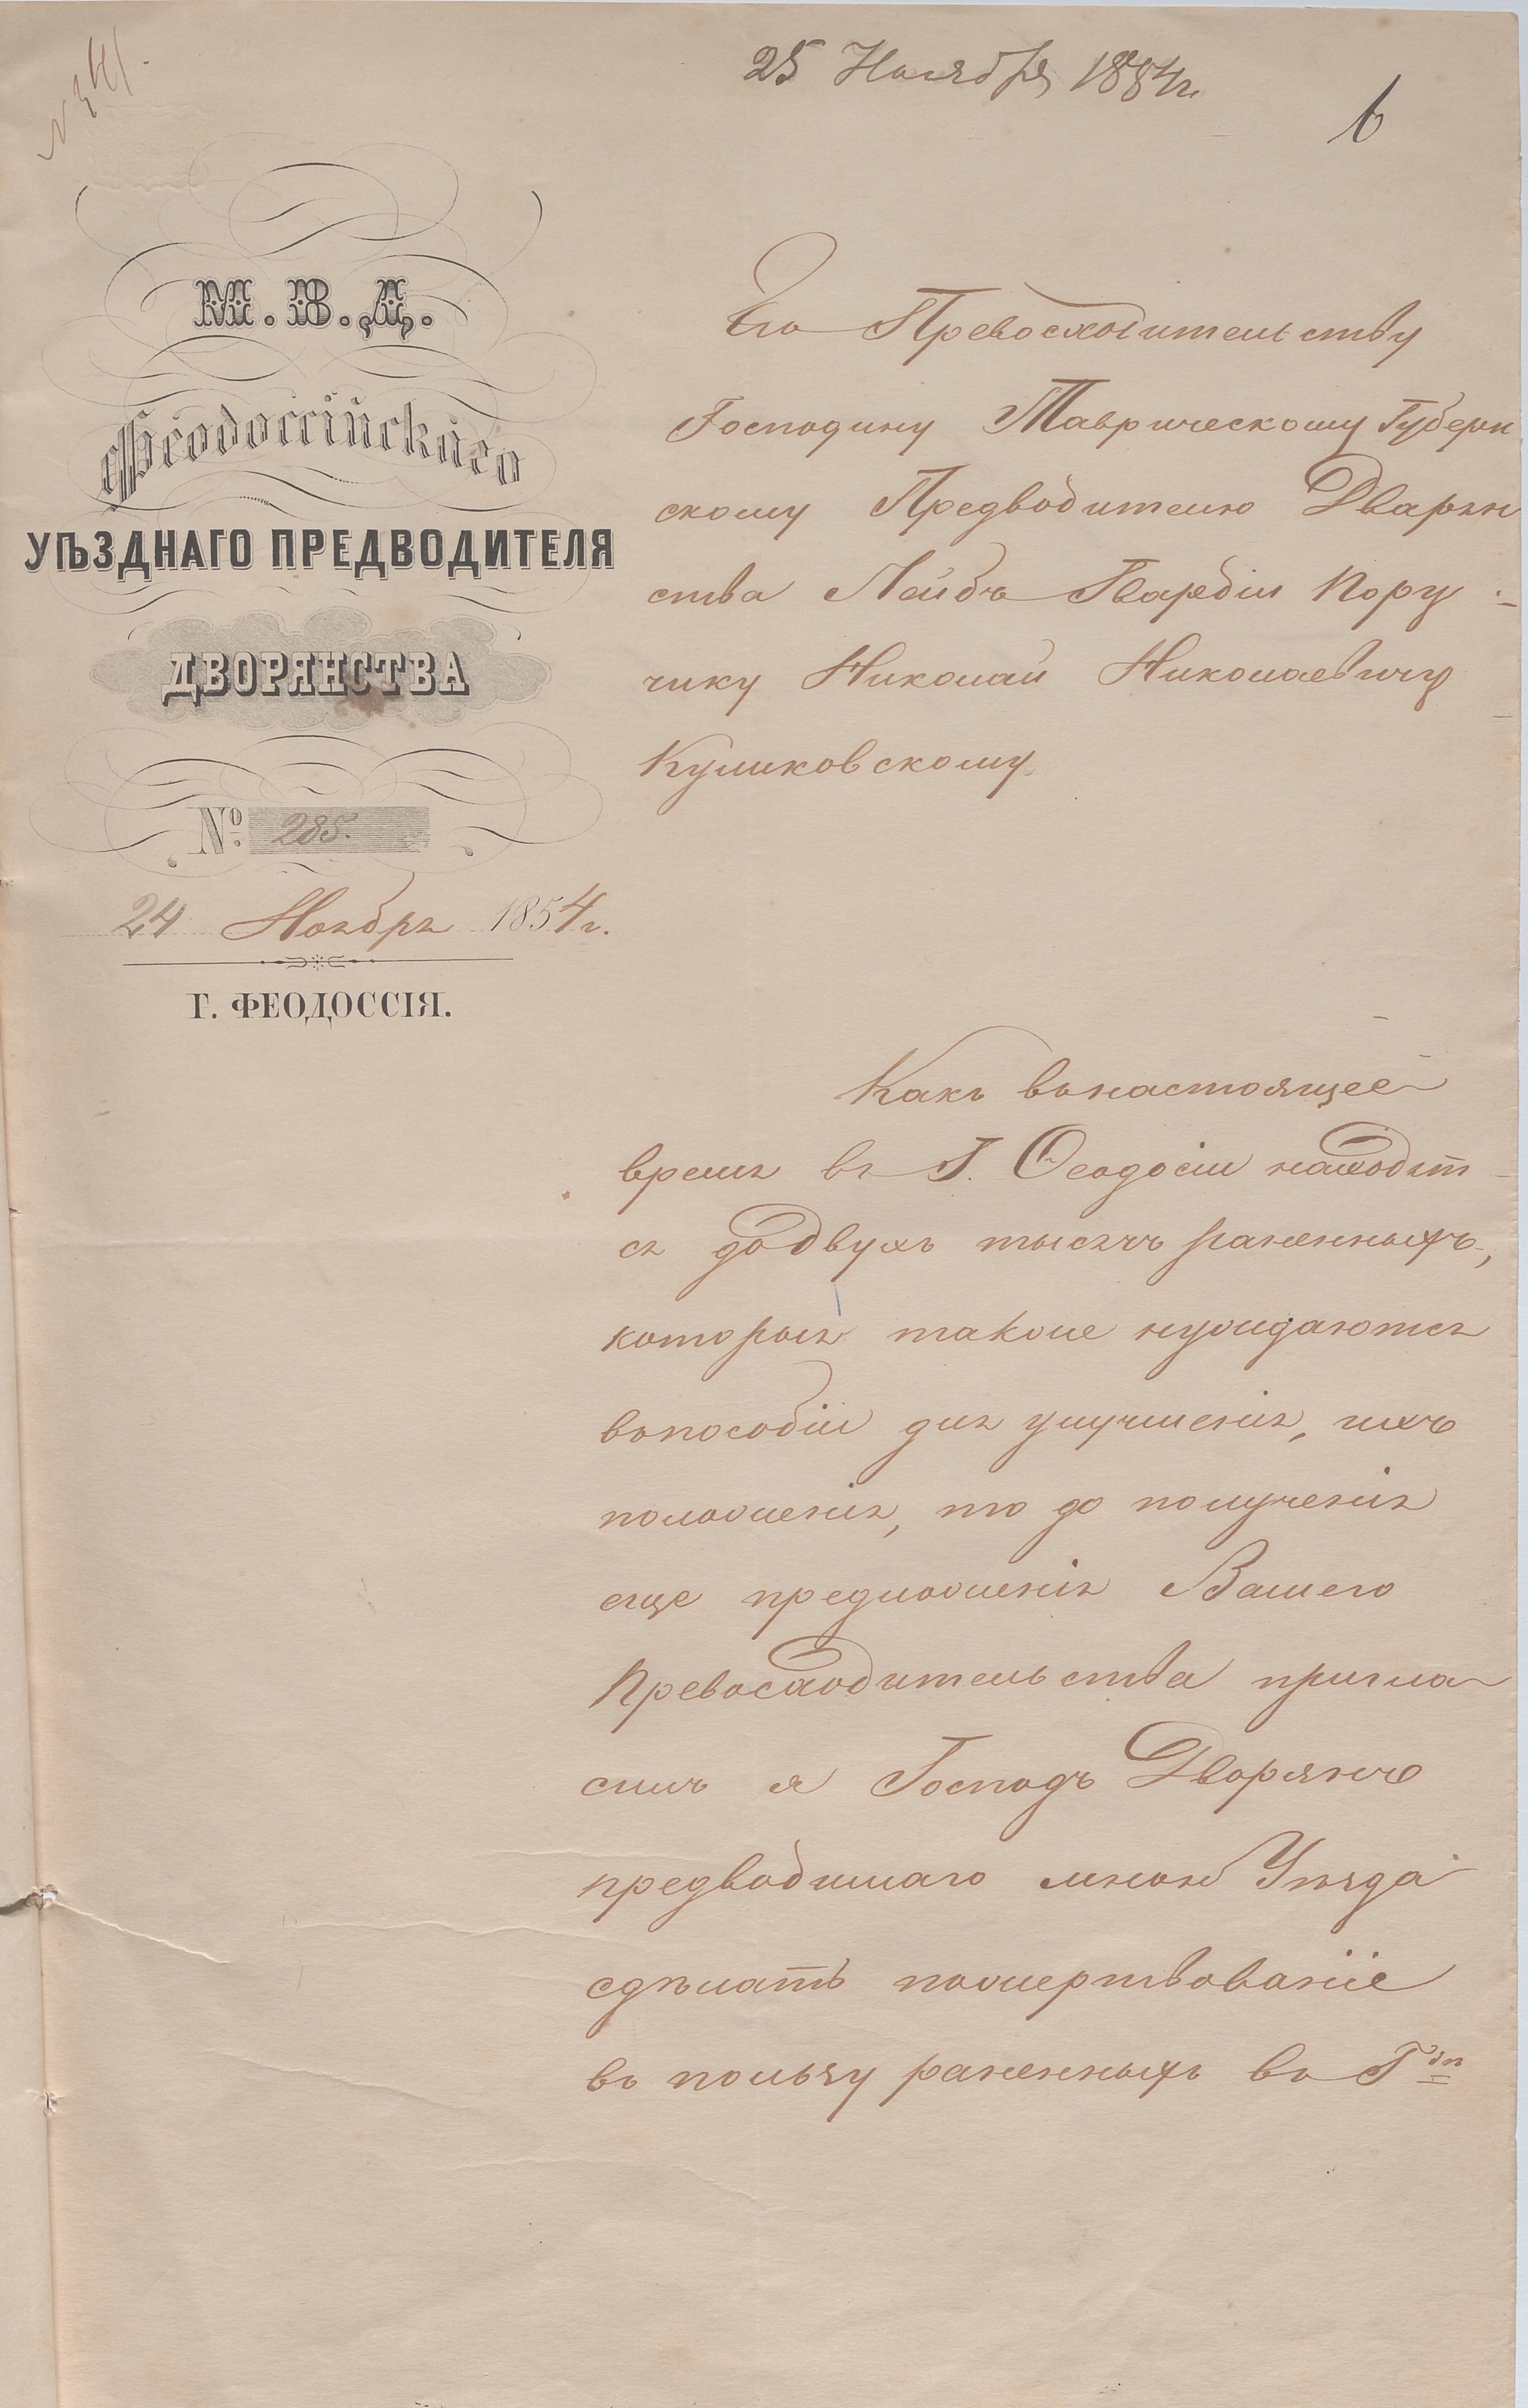 25 Ноября 1854г.
6
М. В. Д.
Феодоссійскаго
УѢЗДНАГО ПРЕДВОДИТЕЛЯ
ДВОРЯНСТВА
№ 285.
24 Ноября 1854 г.
Г. ФЕОДОССІЯ.
Его Превосходительству
Господину Таврическому Губерн
скому Предводителю Дварян
ства Лейбъ Гвардіи Пору-
чику Николаю Николаевичу
Куликовскому.
Какъ въ настоящее
время въ Г. Ѳеодосіи находят-
ся до двухъ тысячъ раненныхъ,
которыя также нуждаются
въ пособіи для улучшенія, ихъ
положенія, то до полученія
еще предложенія Вашего
Превосходительства пригла-
силъ я Господъ Дворянъ
предводимаго мною Уѣзда
сдѣлать пожертвованіе
въ пользу раненныхъ въ